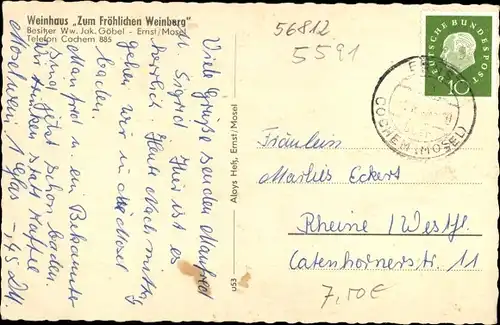 Weinhaus „Zum Fröhlichen Weinberg"
Besitzer Ww. Jak. Göbel - Ernst/Mosel
Telefon Cochem 885
Viele Grüße senden Manfred
u. Sigrid. Hier ist es
herrlich. Heute Nachmittag
gehen wir in die Mosel
baden.
Manfred u. ein Bekannter
sind jetzt schon baden.
Wir trinken statt Kaffee
Moselwein 1 Glas -,45 DM.
Aloys Heß, Ernst/Mosel
u53
56812
5591
DEUTSCHE BUNDESPOST
10
COCHEM (MOSEL)
Fräulein
Eckert
Rheine / Westf.
Catenhornerstr. 11
7,50€